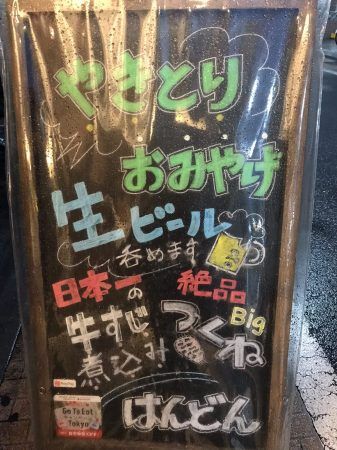 やきとり
おみやげ
生ビール
呑めます
日本一の
牛すじ
煮込み
絶品
Big
つくね
はんどん
Go To Eat
Tokyo